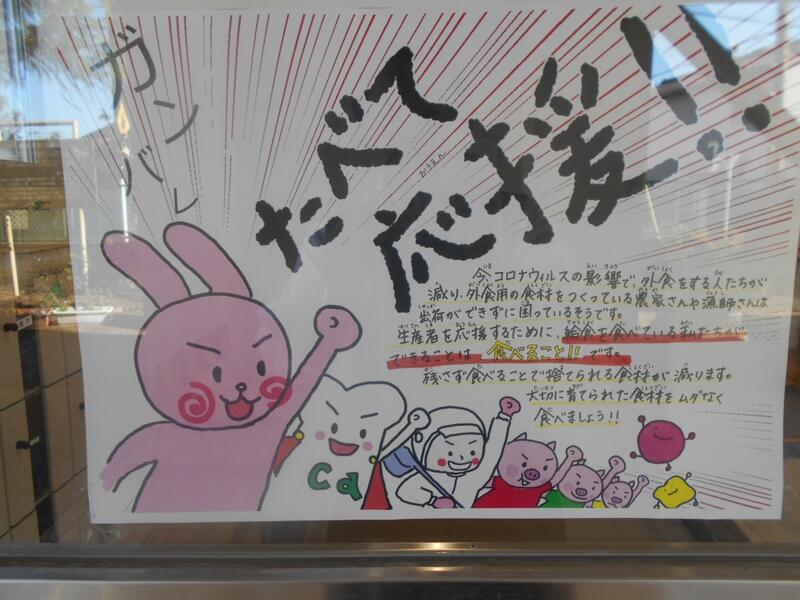 ガンバレ
たべて
応援!!
おうえん
今、コロナウィルスの影響で、外食をする人たちが
減り、外食用の食材をつくっている農家さんや漁師さんは
出荷ができずに困っているそうです。
生産者を応援するために、給食を食べている私たちが
できることは、食べること!!です。
残さず食べることで捨てられる食材が減ります。
大切に育てられた食材をムダなく
食べましょう!!
Ca